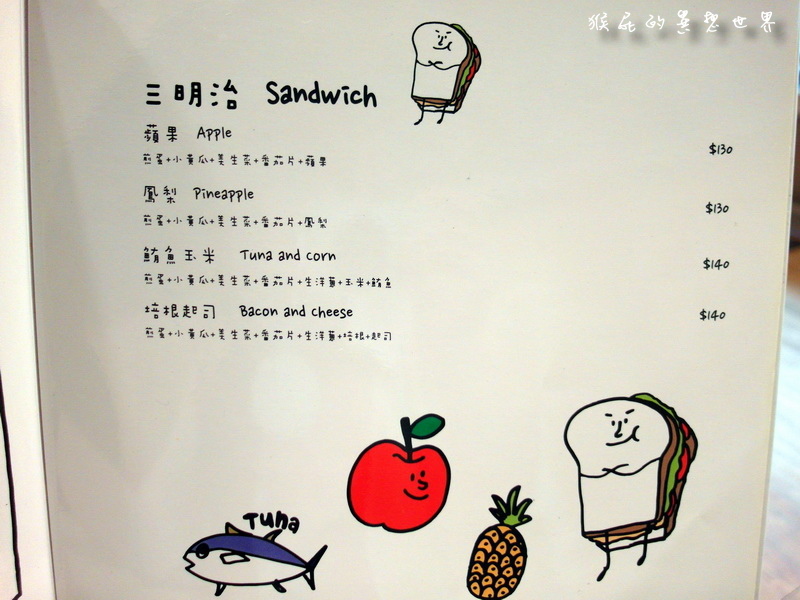 猴屁的異想世界
三明治 Sandwich
蘋果 Apple $130
煎蛋+小黃瓜+美生菜+番茄片+蘋果
鳳梨 Pineapple $130
煎蛋+小黃瓜+美生菜+番茄片+鳳梨
鮪魚玉米 Tuna and corn $140
煎蛋+小黃瓜+美生菜+番茄片+生洋蔥+玉米+鮪魚
培根起司 Bacon and cheese $140
煎蛋+小黃瓜+美生菜+番茄片+生洋蔥+培根+起司
Tuna